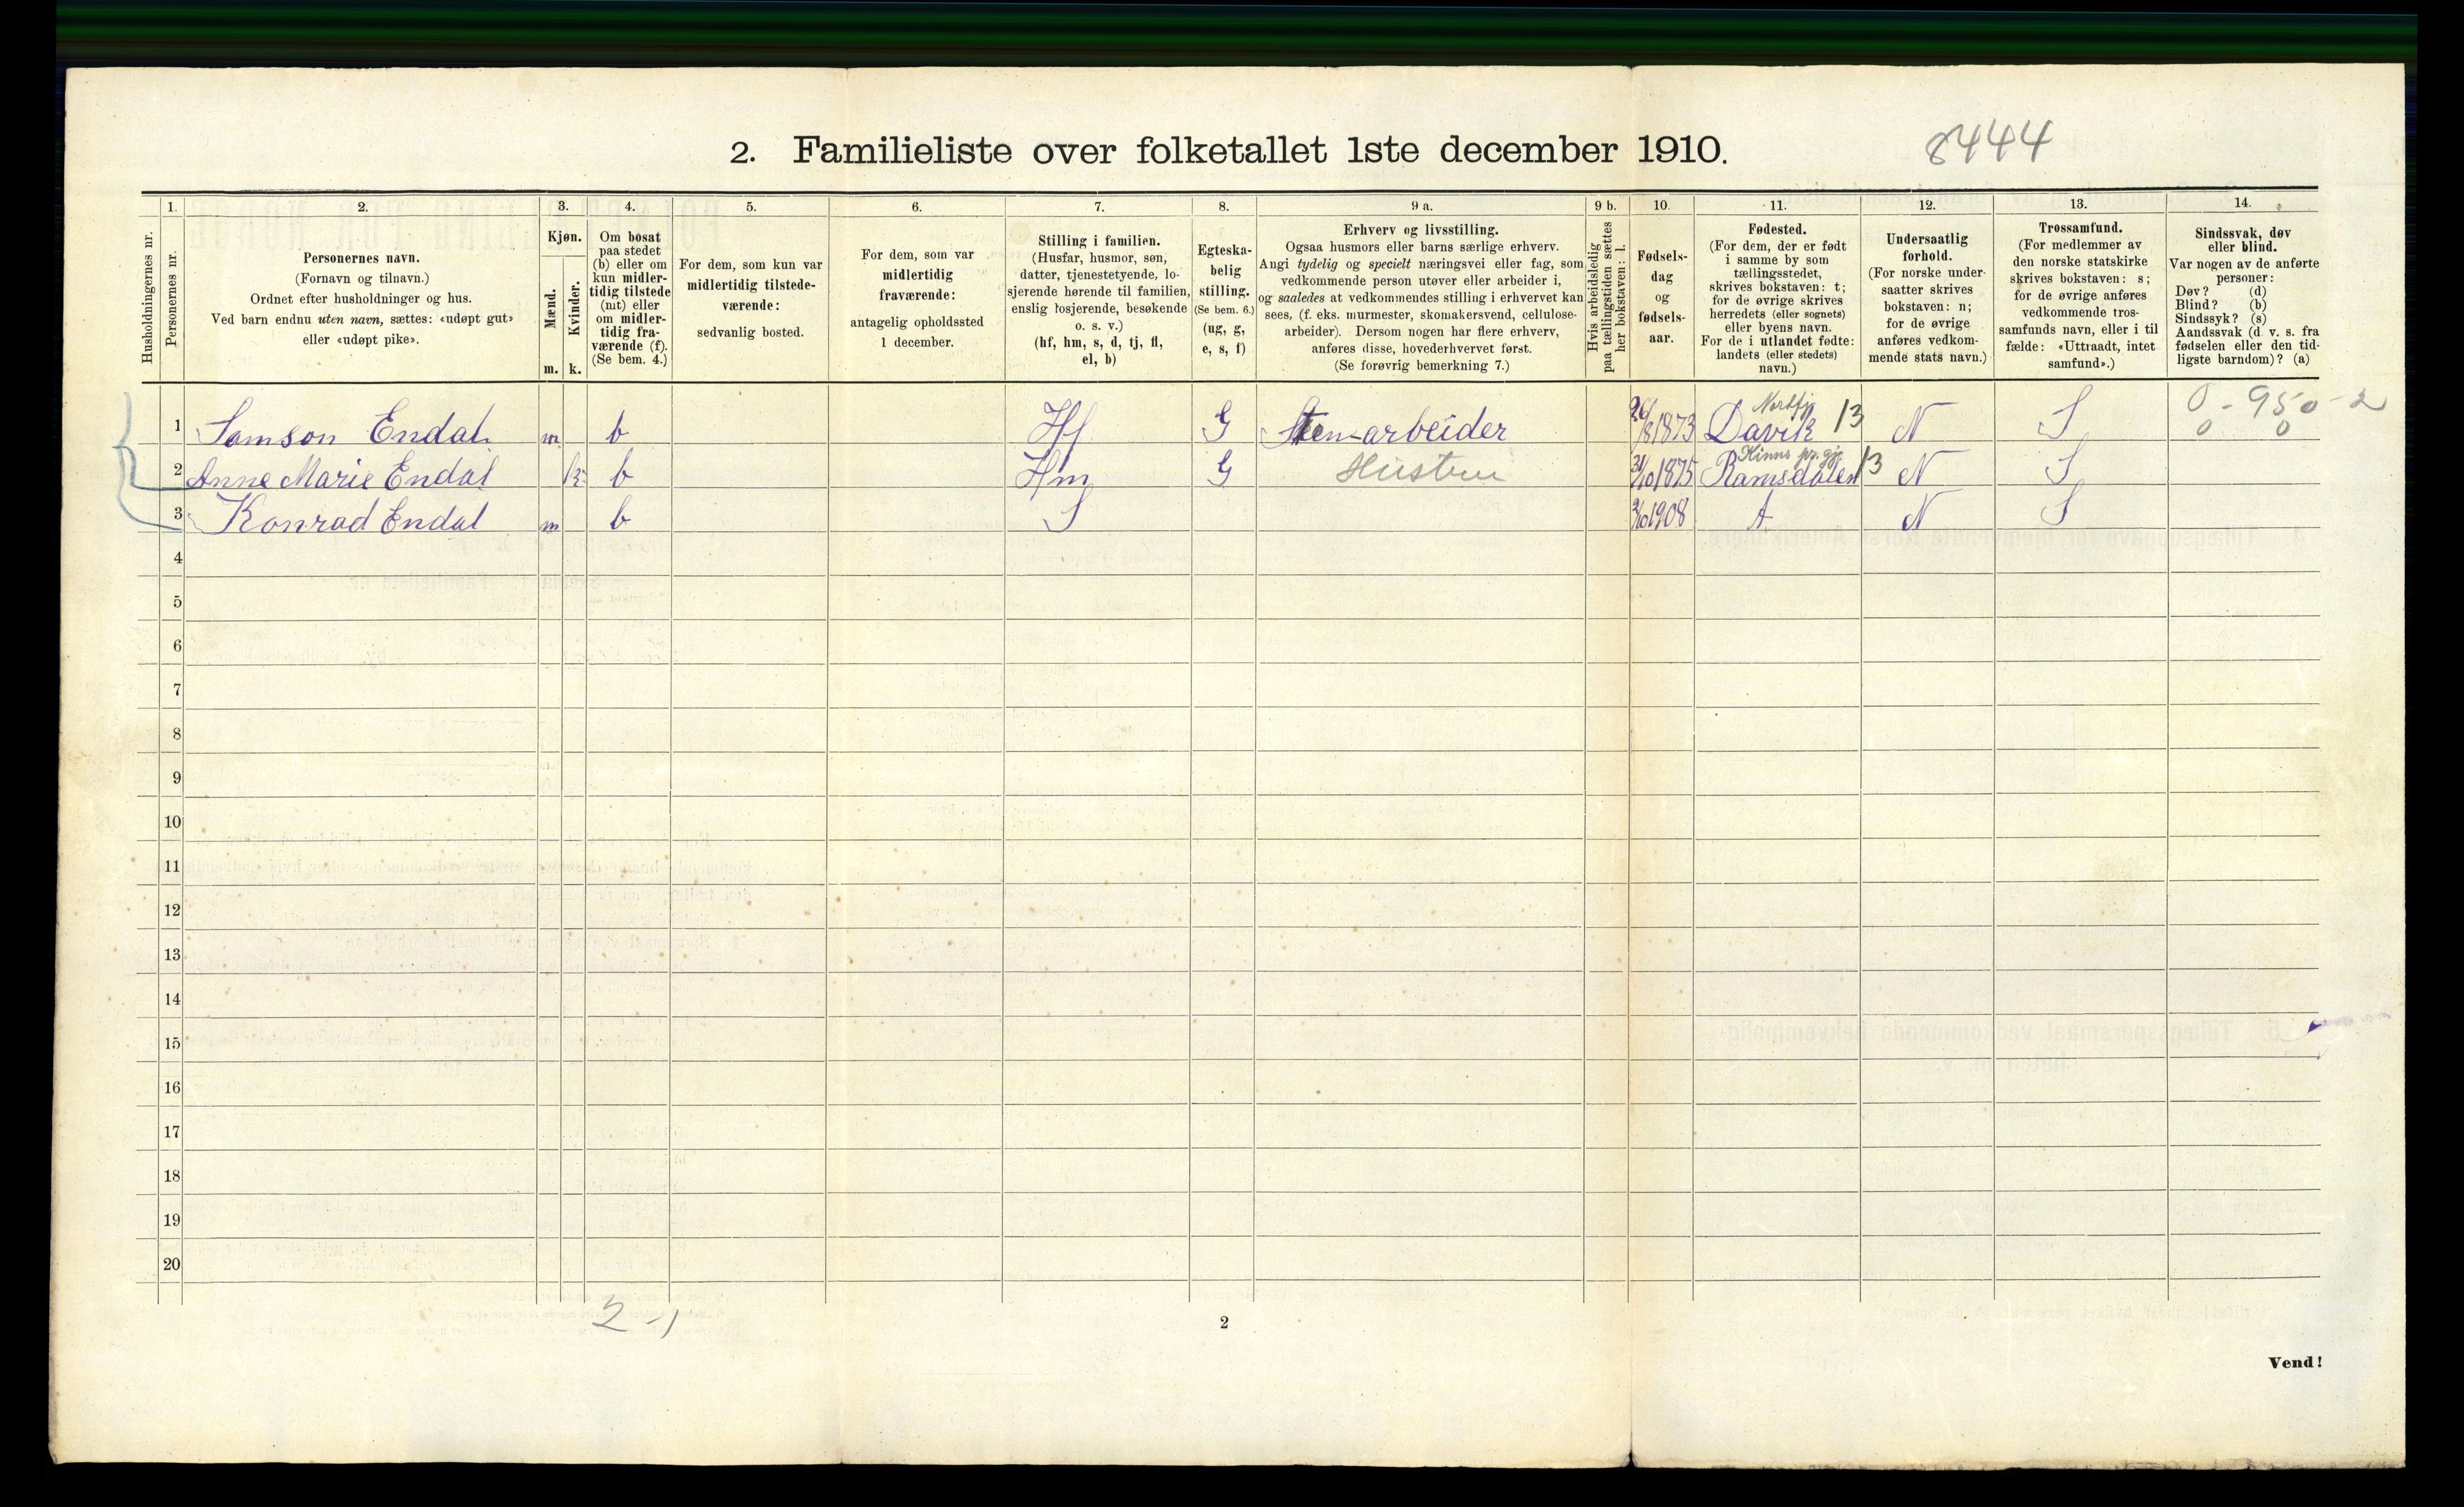 2. Familieliste over folketallet 1ste december 1910.
8444
Husholdningernes nr.
1.
Personernes nr.
2.
Personernes navn.
(Fornavn og tilnavn.)
Ordnet efter husholdninger og hus.
Ved barn endnu uten navn, sættes: «udøpt gut»
eller «udøpt pike».
3.
Kjøn.
Mænd.
Kvinder.
m. k.
4.
Om bosat
paa stedet
(b) eller om
kun midler-
tidig tilstede
(mt) eller
om midler-
tidig fra-
værende (f).
(Se bem. 4.)
5.
For dem, som kun var
midlertidig tilstede-
værende:
sedvanlig bosted.
6.
For dem, som var
midlertidig
fraværende:
antagelig opholdssted
1 december.
7.
Stilling i familien.
(Husfar, husmor, søn,
datter, tjenestetyende, lo-
sjerende hørende til familien,
enslig losjerende, besøkende
o. s. v.)
(hf, hm, s, d, tj, fl,
el, b)
8.
Egteska-
belig
stilling.
(Se bem. 6.)
(ug, g,
e, s, f)
9 a.
Erhverv og livsstilling.
Ogsaa husmors eller barns særlige erhverv.
Angi tydelig og specielt næringsvei eller fag, som
vedkommende person utøver eller arbeider i,
og saaledes at vedkommendes stilling i erhvervet kan
sees, (f. eks. murmester, skomakersvend, cellulose-
arbeider). Dersom nogen har flere erhverv,
anføres disse, hovederhvervet først.
(Se forøvrig bemerkning 7.)
9 b.
Hvis arbeidsledig
paa tællingstiden sættes
her bokstaven: l.
10.
Fødsels-
dag
og
fødsels-
aar.
11.
Fødested.
(For dem, der er født
i samme by som
tællingsstedet,
skrives bokstaven: t;
for de øvrige skrives
herredets (eller sognets)
eller byens navn.
For de i utlandet fødte:
landets (eller stedets)
navn.)
12.
Undersaatlig
forhold.
(For norske under-
saatter skrives
bokstaven: n;
for de øvrige
anføres vedkom-
mende stats navn.)
13.
Trossamfund.
(For medlemmer av
den norske statskirke
skrives bokstaven: s;
for de øvrige anføres
vedkommende tros-
samfunds navn, eller i til-
fælde: «Uttraadt, intet
samfund».)
14.
Sindssvak, døv
eller blind.
Var nogen av de anførte
personer:
Døv? (d)
Blind? (b)
Sindssyk? (s)
Aandssvak (d. v. s. fra
fødselen eller den tid-
ligste barndom)? (a)
Nordfj
0 - 950 - 2
1 Samson Endal m b Hf G Stenarbeider 26/8 1873 Davik 13 N S 0 0
Kinns pr.gj.
2 Anne Marie Endal k b Hm G Hustru 31/10 1875 Ramsdalen 13 N S
3 Konrad Endal m b S 1908 A N S
4
5
6
7
8
9
10
11
12
13
14
15
16
17
18
19
20
2 - 1
2
Vend!